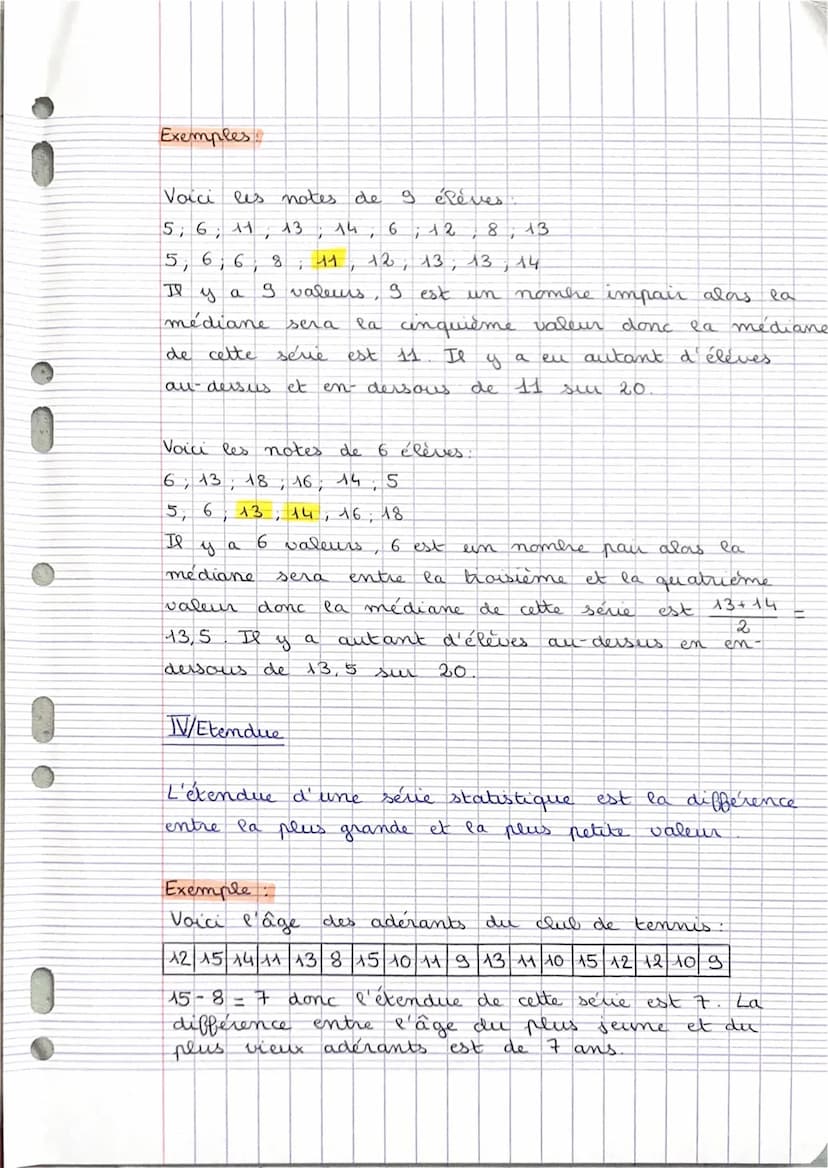 Exemples :
Voici les notes de 9 élèves :
5 ; 6 ; 11 ; 13 ; 14 ; 6 ; 12 ; 8 ; 13
5 ; 6 ; 6 ; 8 ; 11 ; 12 ; 13 ; 13 ; 14
Il y a 9 valeurs, 9 est un nombre impair alors la
médiane sera la cinquième valeur donc la médiane
de cette série est 11. Il y a eu autant d'élèves
au-dessus et en-dessous de 11 sur 20.
Voici les notes de 6 élèves :
6 ; 13 ; 18 ; 16 ; 14 ; 5
5 ; 6 ; 13 ; 14 ; 16 ; 18
Il y a 6 valeurs, 6 est un nombre pair alors la
médiane sera entre la troisième et la quatrième
valeur donc la médiane de cette série est 13+14/2 =
13,5. Il y a autant d'élèves au-dessus en en-
dessous de 13,5 sur 20.
IV/Etendue
L'étendue d'une série statistique est la différence
entre la plus grande et la plus petite valeur.
Exemple :
Voici l'âge des adérants du club de tennis :
12 15 14 11 13 8 15 10 11 9 13 11 10 15 12 12 10 9
15 - 8 = 7 donc l'étendue de cette série est 7. La
différence entre l'âge du plus jeune et du
plus vieux adérants est de 7 ans.